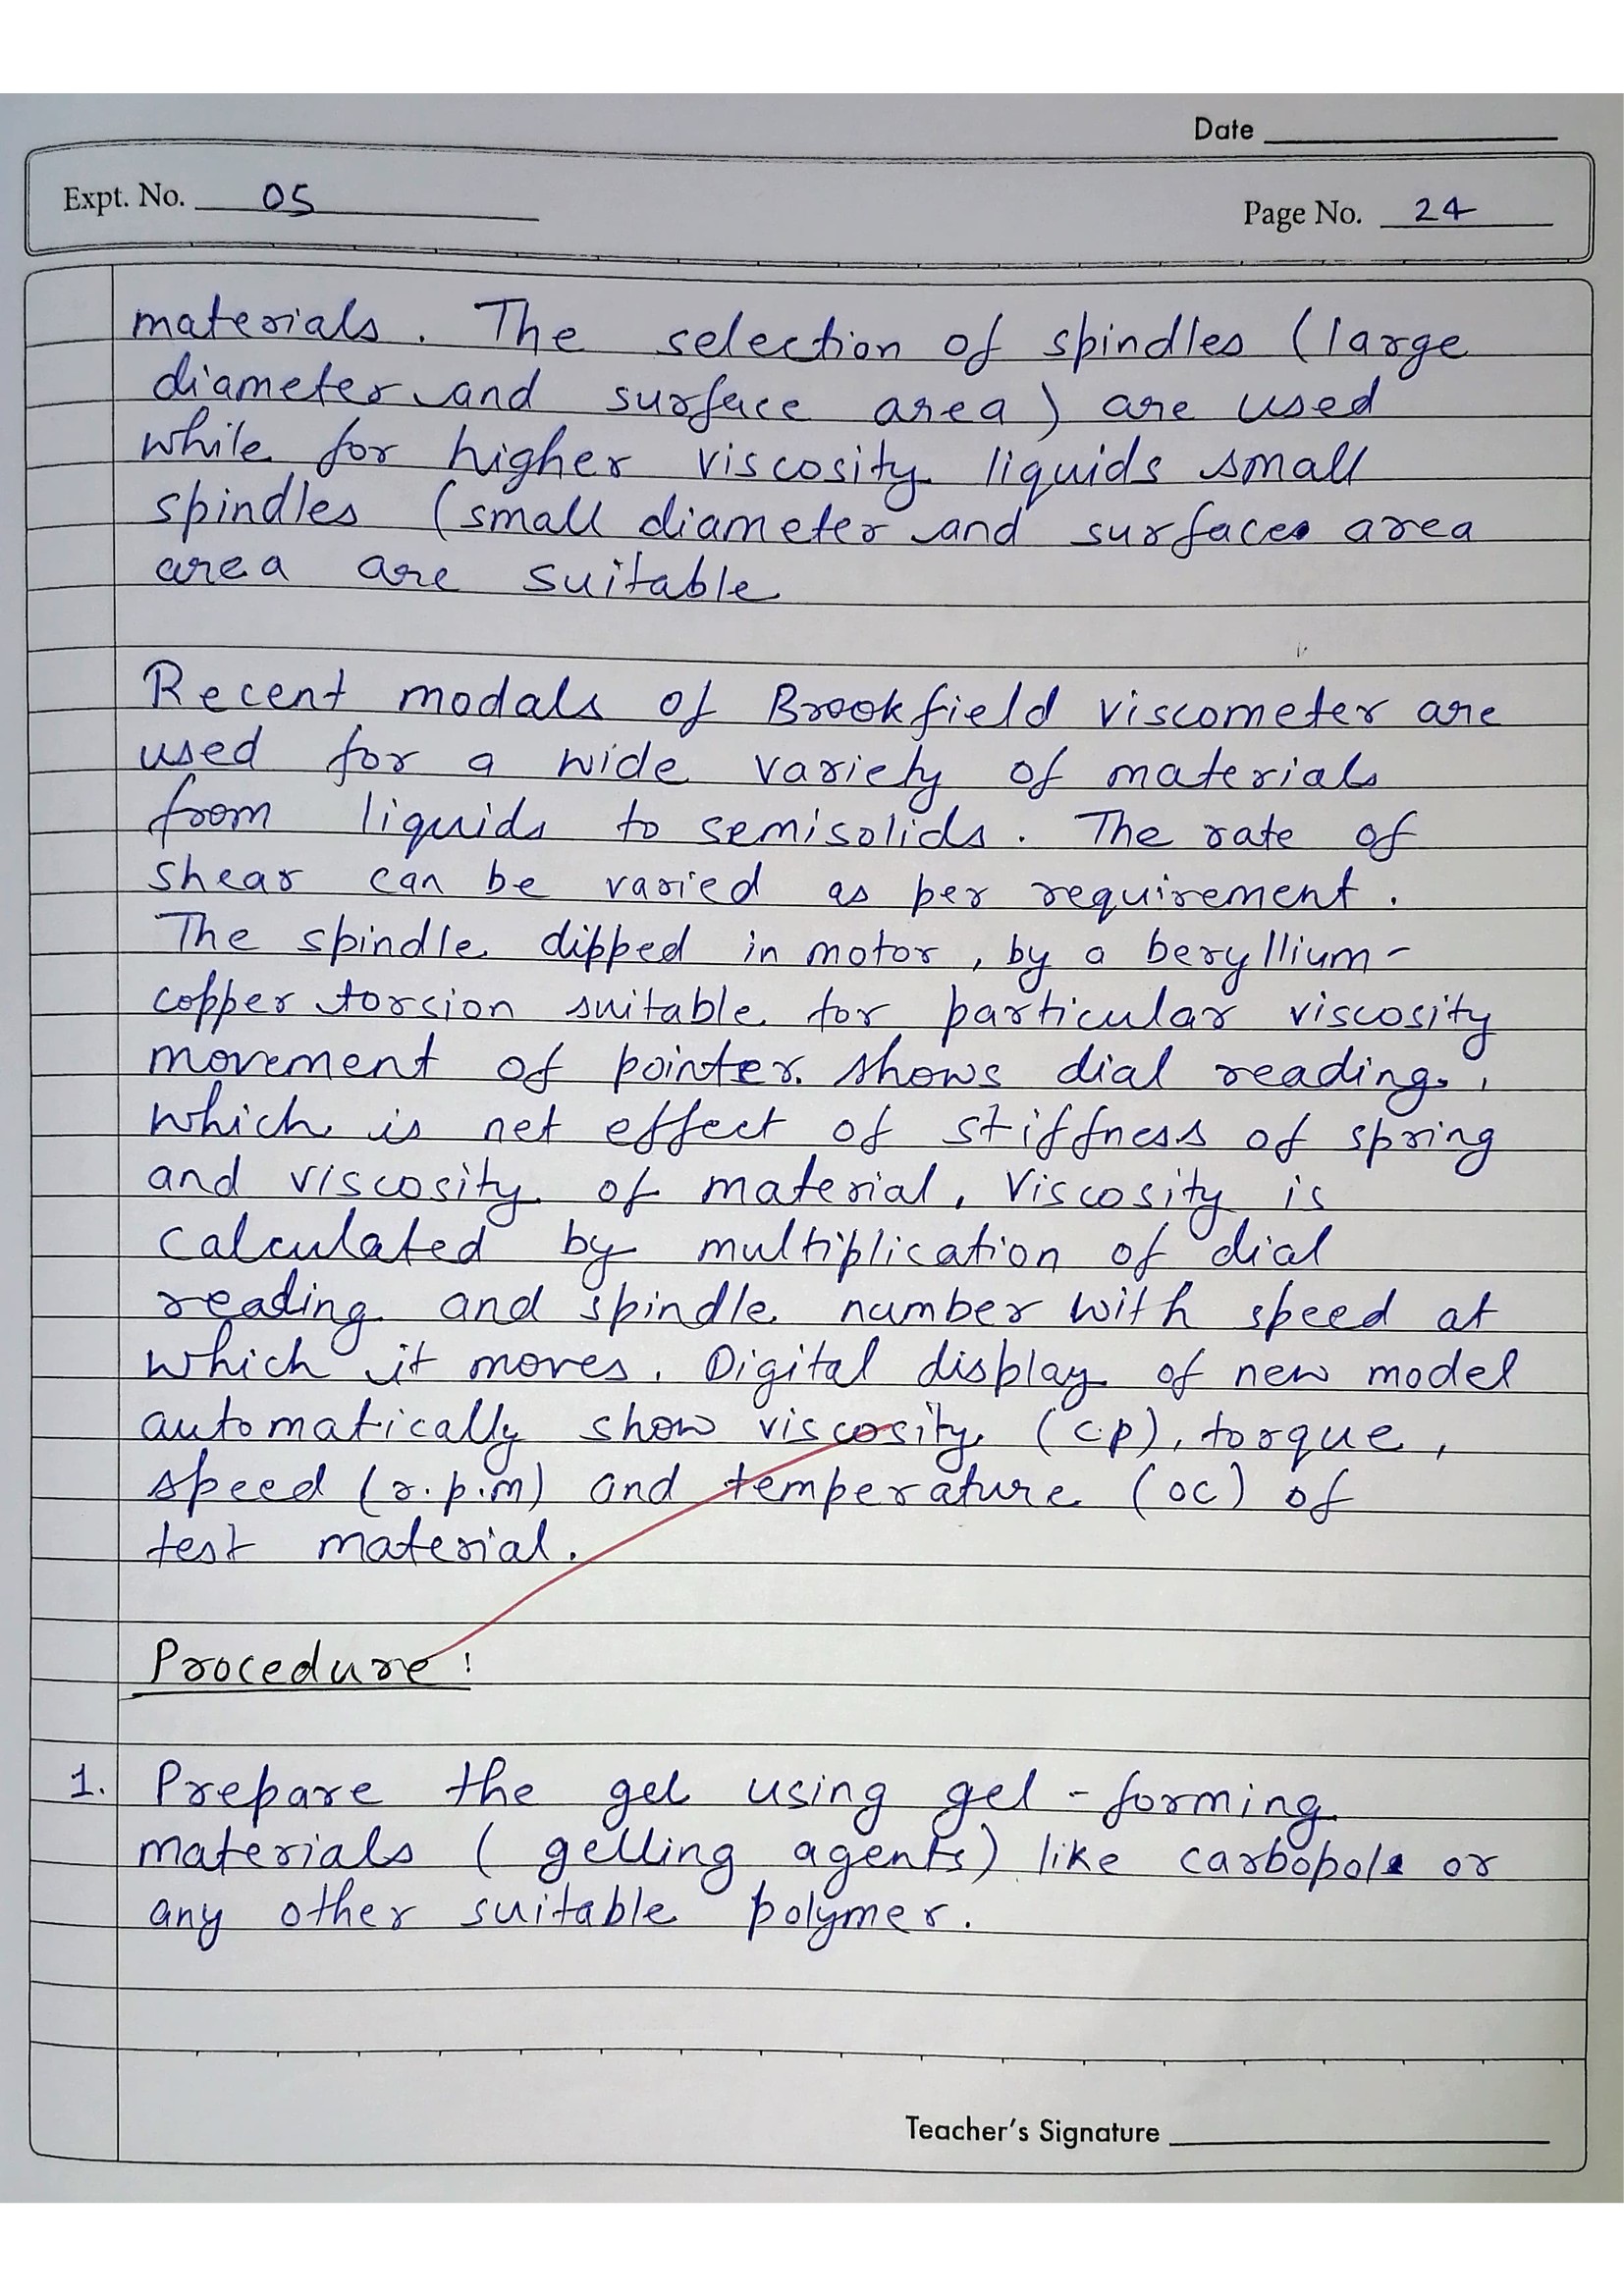 Date
Expt. No. 05
Page No. 24
materials. The selection of spindles (large
diameter and surface area) are used
while for higher viscosity liquids small
spindles (small diameter and surface area
area are suitable
Recent modals of Brookfield viscometer are
used for a wide variety of materials
from liquids to semisolids. The rate of
shear can be varied as per requirement.
The spindle dipped in motor, by a beryllium-
copper torsion suitable for particular viscosity
movement of pointer shows dial reading,
which is net effect of stiffness of spring
and viscosity of material, Viscosity is
calculated by multiplication of dial
reading and spindle number with speed at
which it moves. Digital display of new model
automatically show viscosity (c.p), torque,
speed (r.p.m) and temperature (oc) of
test material.
Procedure:
1. Prepare the gel using gel-forming
materials (gelling agents) like carbopol or
any other suitable polymer.
Teacher's Signature